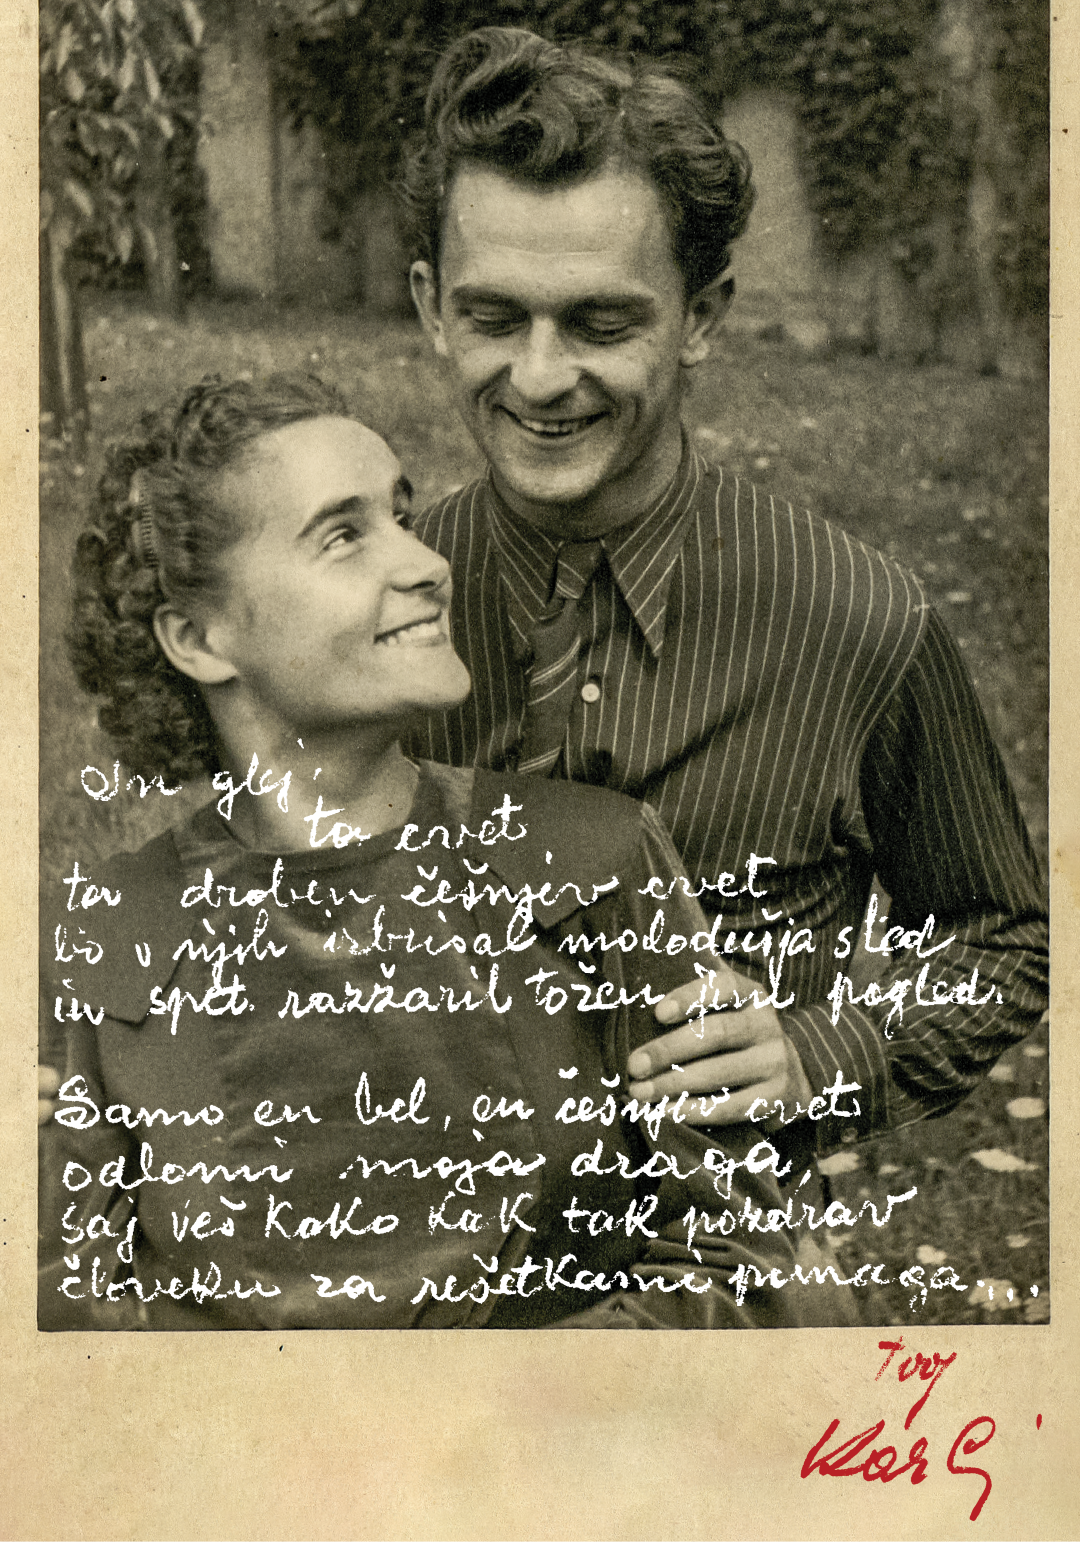 In glej:
ta cvet
ta droben češnjev cvet
bo v njih izbrisal molodušja sled
in spet razžaril tožen jim pogled.
Samo en bel, en češnjev cvet
odlomi moja draga,
saj veš kako kak tak pozdrav
človeku za rešetkami pomaga...
tvoj
Karlj